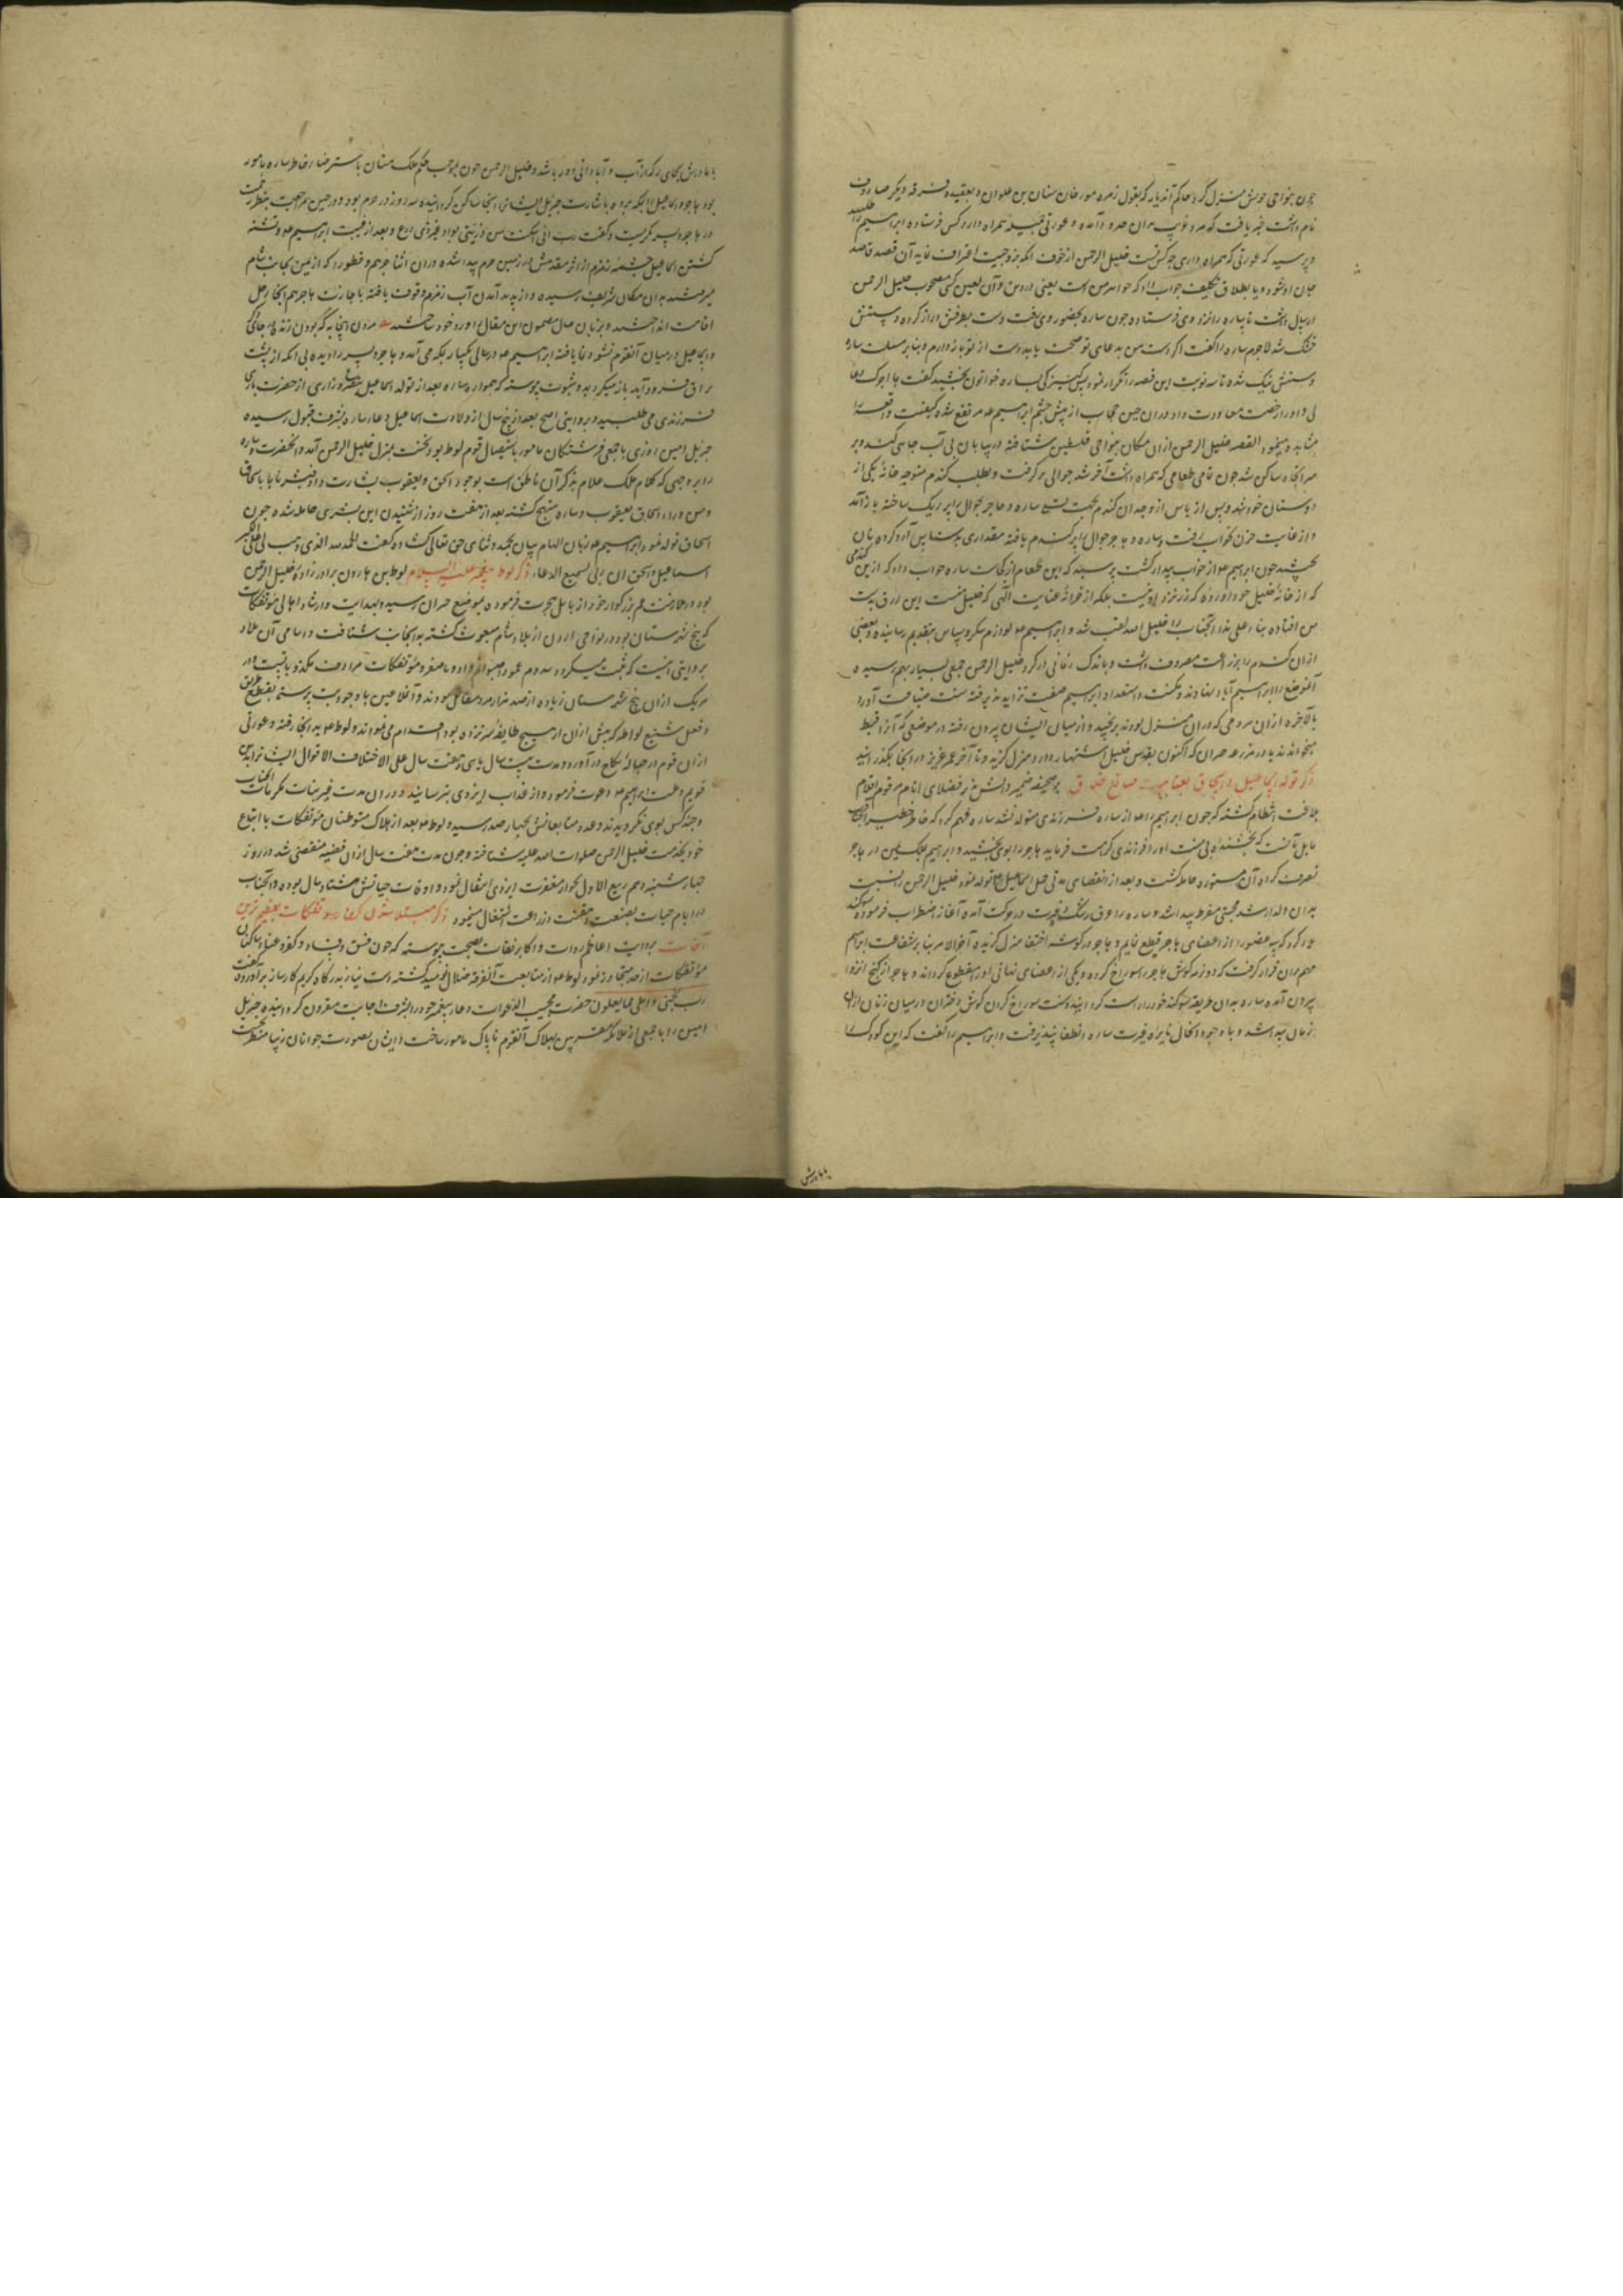 چون بنواحی حوش منزل کرد حاکم آن دیار که بقول زمره مورخان سنان بن علوان و بعقیده فرقه دیگر صادوف
نام داشت خبر یافت که مردی غریب بدان حدود آمده و عورتی جمیله همراه دارد کس فرستاده ابراهیم را طلبید
و پرسید که عورتی که همراه داری چه کس تست خلیل الرحمن از خوف آنکه بزوجیت اعتراف نماید آن قصد
جان او شود و یا بطلاق تکلیف جواب داد که خواهر من است یعنی در دین و آن لعین کس مصحوب خلیل الرحمن
ارسال داشت تا ساره را نزد وی فرستاده چون ساره بحضور وی رفت دست بطرفش دراز کرده دستش
خشک شد لاجرم ساره را گفت اگر دست من بدعای تو صحت یابد دست از تو باز دارم و بنابر مسئلت ساره
دستش نیک شده تا سه نوبت این قصه را تکرار نمود پس کنیزکی بساره خواتون بخشید گفت ها اجرک
و او را رخصت معاودت داد و در آن حین حجاب از پیش چشم ابراهیم مرتفع شده کیفیت واقعه را
مشاهده مینمود القصه خلیل الرحمن از آن مکان بنواحی فلسطین شتافته در بیابان بی آب چاهی کنده بر
سر آنجا ساکن شد چون تمامی طعامی که همراه داشت آخر شد جوالی برگرفت و بطلب گندم متوجه خانه یکی از
دوستان خود شد و پس از یاس از وجدان گندم بجهت تسلی ساره و هاجر جوال را پر ریک ساخته باز آمد
و از غایت حزن بخواب رفت و ساره و هاجر جوال را پر گندم یافته مقداری آرد کرده نان
پختند چون ابراهیم از خواب بیدار گشت پرسید که این طعام از کجاست ساره جواب داد که از این گندمی
که از خانه خلیل خود آورده که نزد او نیست بلکه از خزانه عنایت الهی که خلیل منست این رزق بدست
من افتاده بناء علی هذا آنجناب را خلیل الله لقب شد و ابراهیم لوازم شکر و سپاس بتقدیم رسانیده و بعضی
از آن گندم را بزراعت مصروف داشت و باندک زمانی در گرد خلیل الرحمن جمعی بسیار بهم رسیده
آنموضع را ابراهیم آباد نهادند و مکنت و استعداد ابراهیم صفت تزاید پذیرفته سنت ضیافت آورد
بالآخره از آن مردمی که در آن منزل بودند برنجید و از میان ایشان بیرون رفته در موضعی که آنرا قبط
میخوانند یا در مزرعه حبران که اکنون بقدس خلیل اشتهار دارد منزل گزید و تا آخر عمر عزیز در آنجا بگذرانید
ذکر تولد اسماعیل و اسحاق بعنایت صانع خلاق بر صحیفه ضمیر دانش پذیر فضلای انام مرقوم اقلام
بلاغت انتظام گشته که چون ابراهیم را از ساره فرزندی متولد نشد ساره فهم کرد که خاطر خطیر آنجناب
مایل بآنست که بخشنده بی منت او را فرزندی کرامت فرماید هاجر را بوی بخشید و ابراهیم بملک یمین در هاجر
تصرف کرده آن مستوره حامله گشت و بعد از انقضای مدتی حمل اسماعیل متولد شد خلیل الرحمن را نسبت
بدان ولد ارشد محبتی مفرط پیدا شد و ساره را عرق رشک و غیرت در حرکت آمده آغاز اضطراب فرمود و سوگند
یاد کرد که سه عضو را از اعضای هاجر قطع نمایم و هاجر در گوشه اختفا منزل گزیده آخرالامر بنا بر شفاعت ابراهیم
مهم بران قرار گرفت که دو نرمه گوش هاجر را سوراخ کرده و یکی از اعضای نهانی او را مقطوع گرداند و هاجر از کنج انزوا
بیرون آمده ساره بدان طریقه سوگند خود را راست گردانید و سنت سوراخ کردن گوش دختران در میان زنان از آن
زمان پیدا شد و با وجود آنحال نایره غیرت ساره انطفا نپذیرفت و ابراهیم را گفت که این کودک را
با مادرش
با مادرش بجای بر که از آب و آبادانی دور باشد و خلیل الرحمن چون بموجب حکم ملک منان باسترضاء خاطر ساره مامور
بود هاجر و اسماعیل را بمکه برده باشارت جبرئیل ایشان را آنجا ساکن گردانید و سه روز در حرم بود و در حین مراجعت بنظر رقت
در هاجر و پسر نگریست و گفت رب انی اسکنت من ذریتی بواد غیر ذی زرع و بعد از غیبت ابراهیم و تشنه
گشتن اسماعیل چشمه زمزم از اثر مقدمش در زمین حرم پیدا شده در آن اثنا جرهم و قطورا که از یمن بجانب شام
میرفتند بدان مکان شریف رسیده و از پدید آمدن آب زمزم وقوف یافته باجازت هاجر هم آنجا رحل
اقامت انداختند و بزبان حال مضمون این مقال را ورد خود ساختند
و اسماعیل در میان آنقوم نشو و نما یافته ابراهیم در سالی یکبار بمکه می آمد و هاجر و پسر را دیده بی آنکه از پشت
براق فرود آید باز میگردید و بثبوت پیوسته که همواره ساره بعد از تولد اسماعیل بتضرع و زاری از حضرت باری
فرزندی می طلبید و بروایتی اصح بعد از پنج سال از ولادت اسماعیل دعای ساره بشرف قبول رسیده
جبرئیل امین روزی با جمعی فرشتگان مامور باستیصال قوم لوط بود نخست بمنزل خلیل الرحمن آمد و آنحضرت و ساره
را بر وجهی که کلام ملک علام بذکر آن ناطق است بوجود اسحق و یعقوب بشارت داد فبشرناها باسحاق
و من وراء اسحاق یعقوب و ساره مبتهج گشته بعد از هفت روز از شنیدن این بشری حامله شده چون
اسحاق تولد نمود ابراهیم زبان الهام بیان بحمد و ثنای حق تعالی گشاده گفت الحمد لله الذی وهب لی علی الکبر
اسماعیل و اسحق ان ربی لسمیع الدعاء ذکر لوط پیغمبر علیه السلام لوط بن هارون برادرزاده خلیل الرحمن
بود و در ملازمت عم بزرگوار خود از بابل هجرت فرموده بموضع حران رسید و بهدایت و ارشاد اهالی مؤتفکات
که پنج شهرستان بود در نواحی اردن از بلاد شام مبعوث گشته بدانجانب شتافت و اسامی آن بلاد
بروایتی اینست که ثبت میگردد سدوم عمورا و ادوما صفر و مؤتفکات مرادف مکذوبانست و در
هر یک از آن پنج شهرستان زیاده از صد هزار مرد مقاتل بودند و آن ملاعین با وجود بت پرستی بقطع طریق
و فعل شنیع لواطه که پیش از آن از هیچ طایفه سر نزده بود اقدام می نمودند و لوط بدانجا رفته و عورتی
از آن قوم در حباله نکاح در آورد و مدت بیست سال یا سی و هفت سال علی الاختلاف الاقوال ایشان را بدین
قویم و ملت ابراهیم دعوت فرمود و از عذاب ایزدی بترسانید و در آن مدت غیر بنات مکرمات آنجناب
و چند کس بوی نگرویدند و عدد متابعانش بچهار صد رسید و لوط بعد از هلاک متوطنان مؤتفکات با اتباع
خود بخدمت خلیل الرحمن صلوات الله علیه شتافته و چون مدت هفت سال از آن قضیه منقضی شد در روز
چهارشنبه دهم ربیع الاول بجوار مغفرت ایزدی انتقال نمود و اوقات حیاتش هشتاد سال بوده و آنجناب
در ایام حیات بصنعت و زراعت اشتغال مینمود ذکر مبتلا شدن کفار مؤتفکات بعظیم ترین
آفات بروایت اعاظم روات و اکابر ثقات بصحت پیوسته که چون فسق و فساد و کفر و عناد ساکنان
مؤتفکات از حد متجاوز نمود لوط از متابعت آنفرقه ضلال نومید گشته دست نیاز بدرگاه کریم کارساز برآورده گفت
رب نجنی و اهلی مما یعملون حضرت مجیب الدعوات دعای پیغمبر خود را بشرف اجابت مقرون گردانیده جبریل
امین را با جمعی از ملائکه مقربین بهلاک آنقوم ناپاک مامور ساخت و ایشان بصورت جوانان زیبا منظر نخست